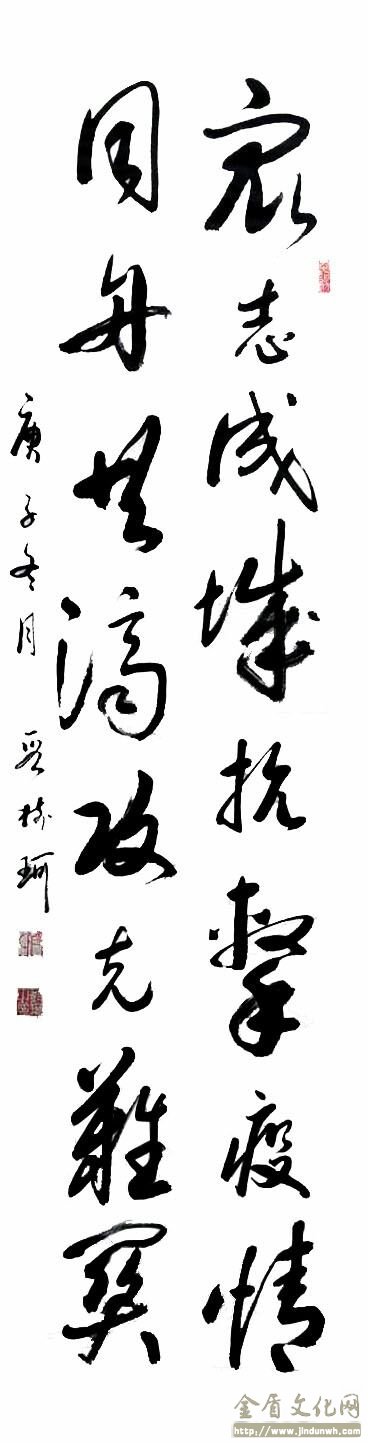 眾志成城抗擊疫情
同舟共濟攻克難關
庚子冬月
樹珂
金盾文化网
http://www.jindunwh.com